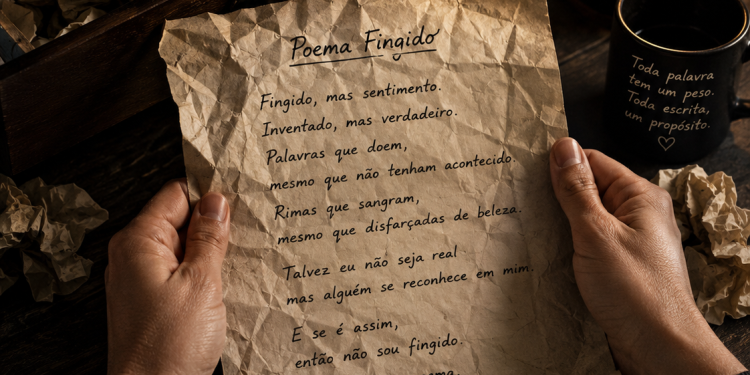 Poema Fingido
Fingido, mas sentimento.
Inventado, mas verdadeiro.
Palavras que doem,
mesmo que não tenham acontecido.
Rimas que sangram,
mesmo que disfarçadas de beleza.
Talvez eu não seja real
mas alguém se reconhece em mim.
E se é assim,
então não sou fingido.
Toda palavra
tem um peso.
Toda escrita,
um propósito.